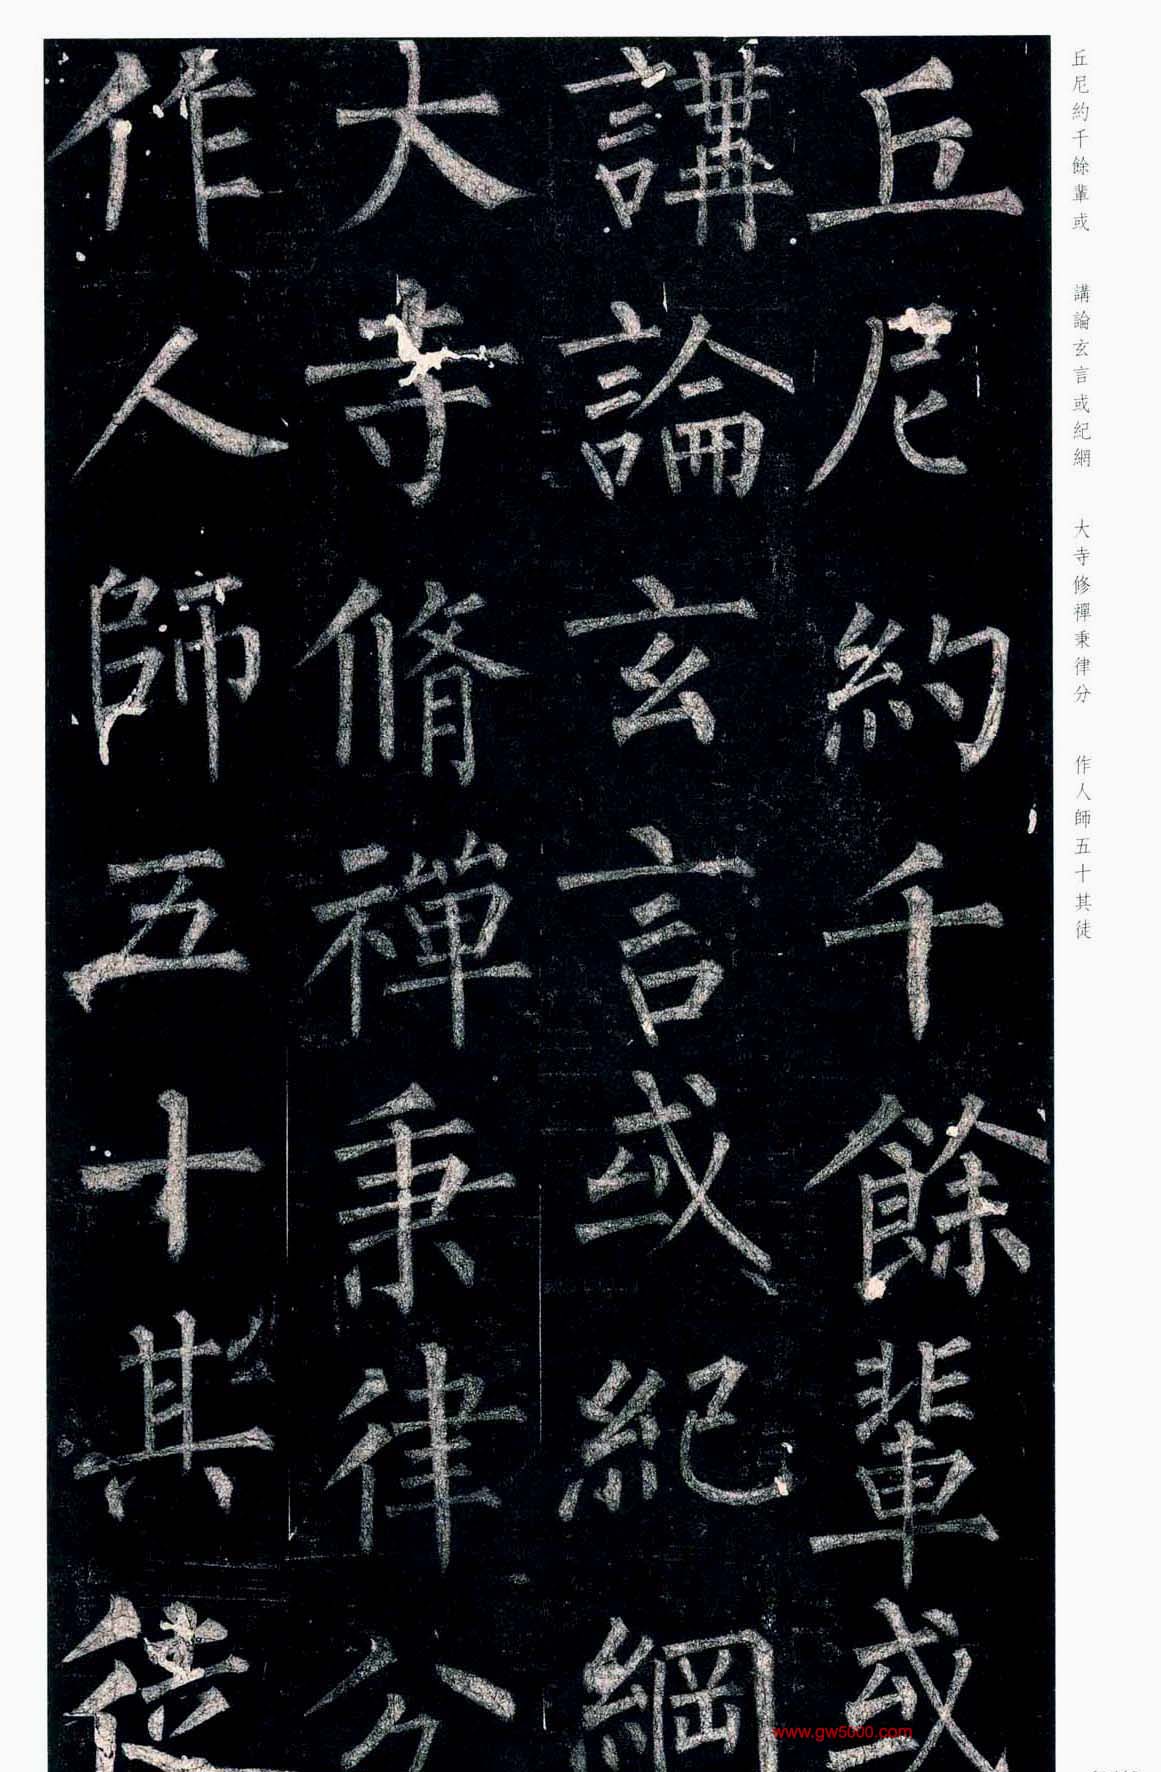 丘尼約千餘輩或
講論玄言或紀綱
大寺脩禪秉律分
作人師五十其徒
丘尼約千餘輩或
講論玄言或紀網
大寺修禪秉律分
作人師五十其徒
www.gw5000.com